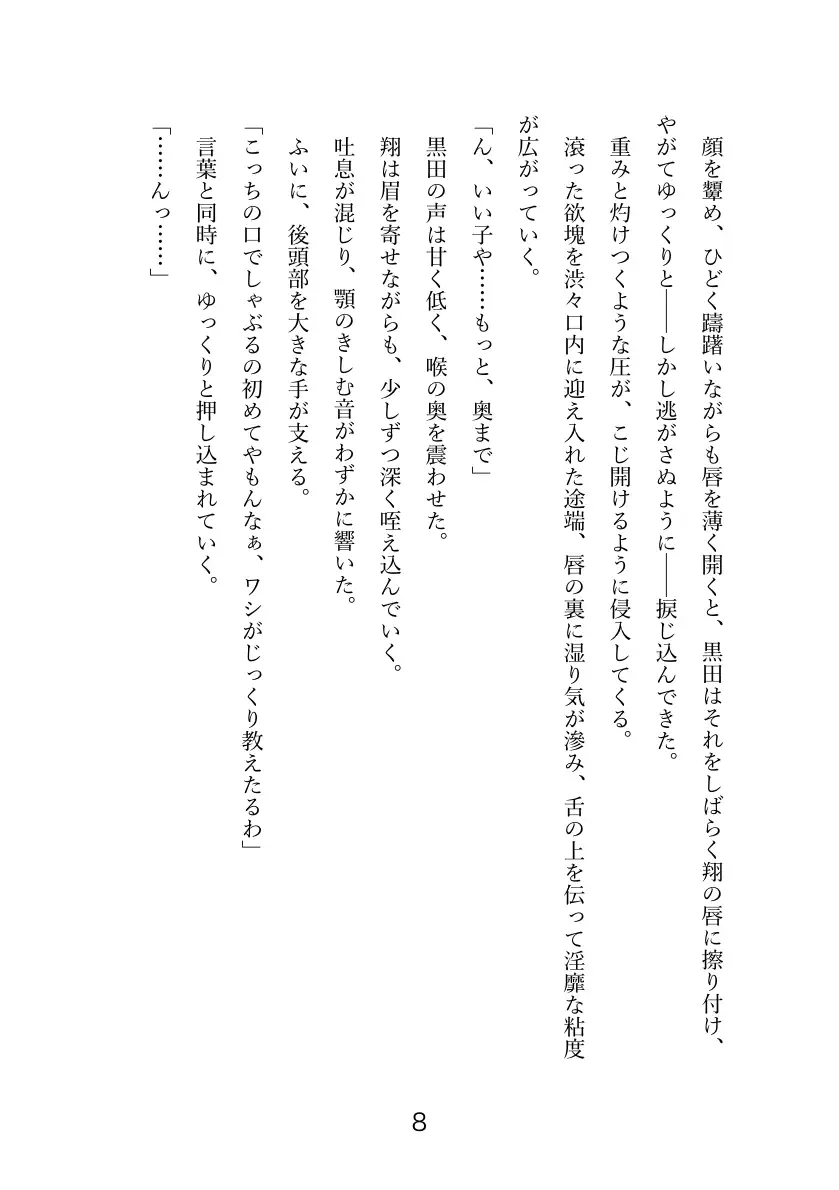 顔を顰め、ひどく躊躇いながらも唇を薄く開くと、黒田はそれをしばらく翔の唇に擦り付け、
やがてゆっくりと――しかし逃がさぬように――捩じ込んできた。
重みと灼けつくような圧が、こじ開けるように侵入してくる。
滾った欲塊を渋々口内に迎え入れた途端、唇の裏に湿り気が滲み、舌の上を伝って淫靡な粘度
が広がっていく。
「ん、いい子や……もっと、奥まで」
黒田の声は甘く低く、喉の奥を震わせた。
翔は眉を寄せながらも、少しずつ深く咥え込んでいく。
吐息が混じり、顎のきしむ音がわずかに響いた。
ふいに、後頭部を大きな手が支える。
「こっちの口でしゃぶるの初めてやもんなぁ、ワシがじっくり教えたるわ」
言葉と同時に、ゆっくりと押し込まれていく。
「……んっ……」
8